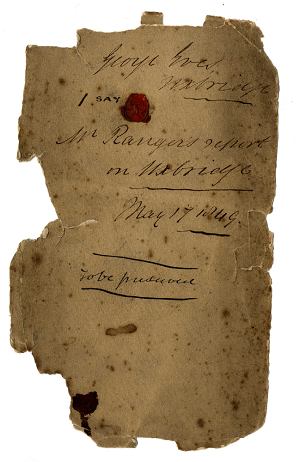 George Ives
Uxbridge
I SAY
Mr Rangers report
on Uxbridge
May 17 1849.
To be preserved